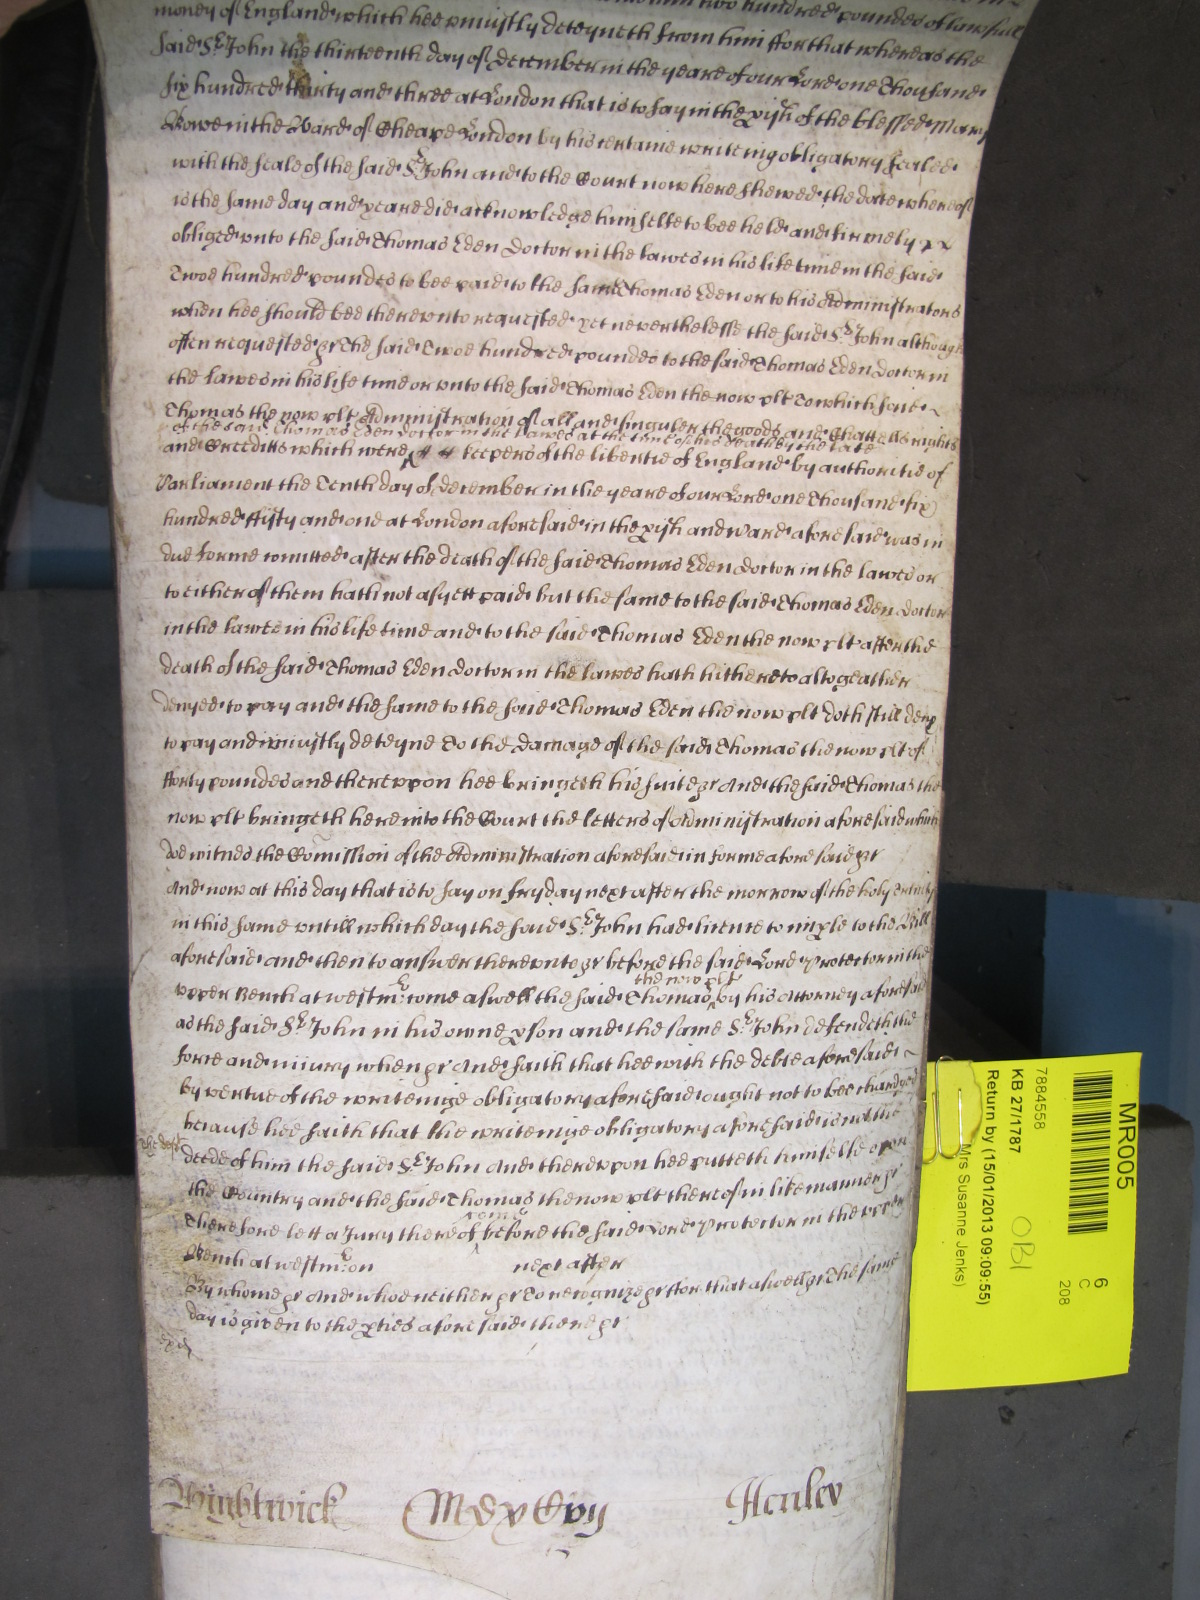 two hundred poundes of lawfull
money of England which hee uniustly deteyneth from him ffor that whereas the
said Sr John the thirteenth day of december in the yeare of our Lord one Thousand
six hundred thirty and three at London that is to say in the pish of the blessed Mary
Bowe in the Ward of Cheape London by his certaine writeing obligatory sealed
with the seale of the said Sr John and to the Court now here shewed the date whereof
is the same day and yeare did acknowledge himselfe to bee held and firmely
obliged unto the said Thomas Eden doctor in the lawes in his life time in the said
Twoe hundred poundes to bee paid to the same Thomas Eden or to his Administrators
when hee should bee thereunto requested yet neverthelesse the said Sr John although
often requested &c The said Twoe hundred poundes to the said Thomas Eden doctor in
the lawes in his life time or unto the said Thomas Eden the now plt To which said
Thomas the now plt Administration of all and singuler the goods and Chattells rights
of the said Thomas Eden doctor in the lawes at the time of his death by the late
and Creditts which were keepers of the libertie of England by authoritie of
Parliament the Tenth day of december in the yeare of our Lord one Thousand six
hundred ffifty and one at London aforesaid in the pish and ward aforesaid was in
due forme comitted after the death of the said Thomas Eden doctor in the lawes or
to either of them hath not as yett paid but the same to the said Thomas Eden doctor
in the lawes in his life time and to the said Thomas Eden the now plt after the
death of the said Thomas Eden doctor in the lawes hath hithereto altogeather
denyed to pay and the same to the said Thomas Eden the now plt doth still deny
to pay and uniustly deteyne To the damage of the said Thomas the now plt of
fforty poundes and thereupon hee bringeth his suite &c And the said Thomas the
now plt bringeth here into the Court the letters of Administration aforesaid which
doe witnes the Comission of the Administration aforesaid in forme aforesaid &c
And now at this day that is to say on fryday next after the morrow of the holy Trinity
in this same untill which day the said Sr John had licence to imple to the Bill
aforesaid and then to answer thereunto &c before the said Lord Protector in the
the now plt
upper Bench at westmr come aswell the said Thomas by his Attorney aforesaid
as the said Sr John in his owne pson and the same Sr John defendeth the
force and iniury when &c And saith that hee with the debte aforesaid
by vertue of the writeinge obligatory aforesaid ought not to bee charged
because hee saith that the writeinge obligatory aforesaid is not the
deede of him the said Sr John And thereupon hee putteth himselfe upon
the Country and the said Thomas the now plt thereof in like manner &c
come
Therefore lett a Jury thereof before the said Lord Protector in the upper
Bench at westmr on next after
By whome &c And whoe neither &c To recognize &c ffor that aswell &c The same
day is given to the pties aforesaid there &c
Wightwick Henley
MR005
7884558
KB 27/1787
Return by (15/01/2013 09:09:55)
Mrs Susanne Jenks)
OBI
6
C
208